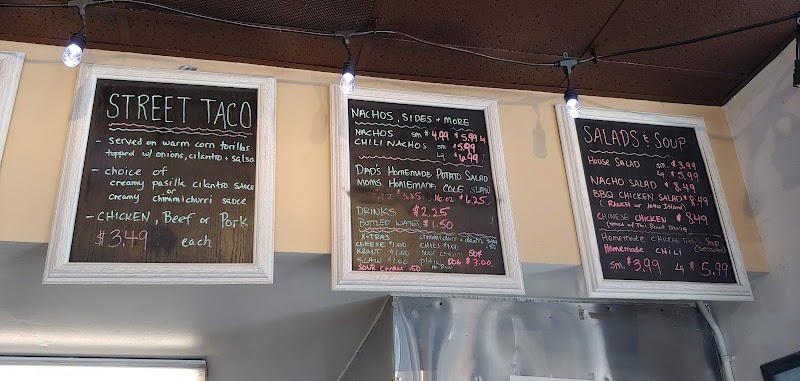 STREET TACO
- served on warm corn torillas
topped w/ onions, cilantro + salsa
- choice of
creamy pasilla cilantro sauce
or
creamy chimmichurri sauce
- CHICKEN, Beef or Pork
$3.49 each
NACHOS, SIDES + MORE
NACHOS sm $4.99 $5.99 L
CHILI NACHOS sm $5.99
Lg $6.99
DAD'S HOMEMADE POTATO SALAD
MOMS HOMEMADE COLE SLAW
12 $3.25 16oz $6.25
DRINKS $2.25
BOTTLED WATER $1.50
X-TRAS chimmichurri
CHEESE $1.00 CHILI $1.00
KRAUT $1.00 SOUR CREAM 50¢
SLAW $1.00 PLAIN DOG $3.00
SOUR CREAM .50 No Bun
SALADS & SOUP
HOUSE SALAD sm $3.99
Lg $5.99
NACHO SALAD $8.49
BBQ CHICKEN SALAD $8.49
(RANCH or 1000 Island)
CHINESE CHICKEN $8.49
Homemade CHICKEN SOUP
Homemade CHILI
sm $3.99 Lg $5.99